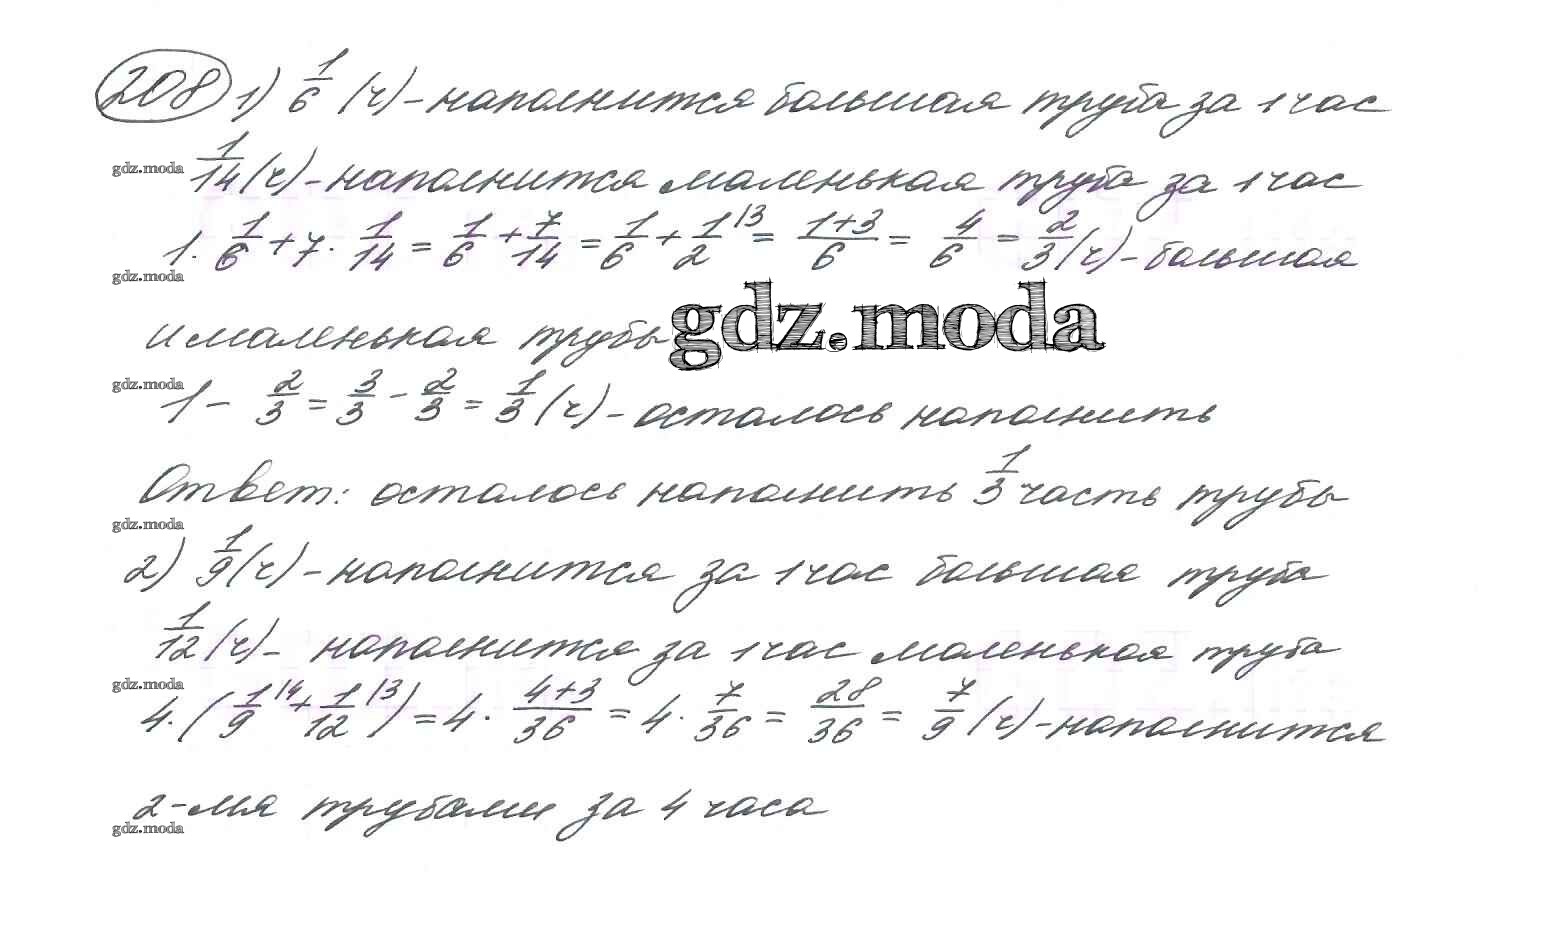 208 1) 1/6 (ч) - наполнится большая труба за 1 час
gdz.moda
1/14 (ч) - наполнится маленькая труба за 1 час
1 · 1/6 + 7 · 1/14 = 1/6 + 7/14 = 1/6 + 1/2 |3 = (1+3)/6 = 4/6 = 2/3 (ч) - большая
gdz.moda
и маленькая трубы
gdz.moda
gdz.moda
1 - 2/3 = 3/3 - 2/3 = 1/3 (ч) - осталось наполнить
Ответ: осталось наполнить 1/3 часть трубы
gdz.moda
2) 1/9 (ч) - наполнится за 1 час большая труба
1/12 (ч) - наполнится за 1 час маленькая труба
gdz.moda
4 · (1/9 |4 + 1/12 |3) = 4 · (4+3)/36 = 4 · 7/36 = 28/36 = 7/9 (ч) - наполнится
2-мя трубами за 4 часа
gdz.moda